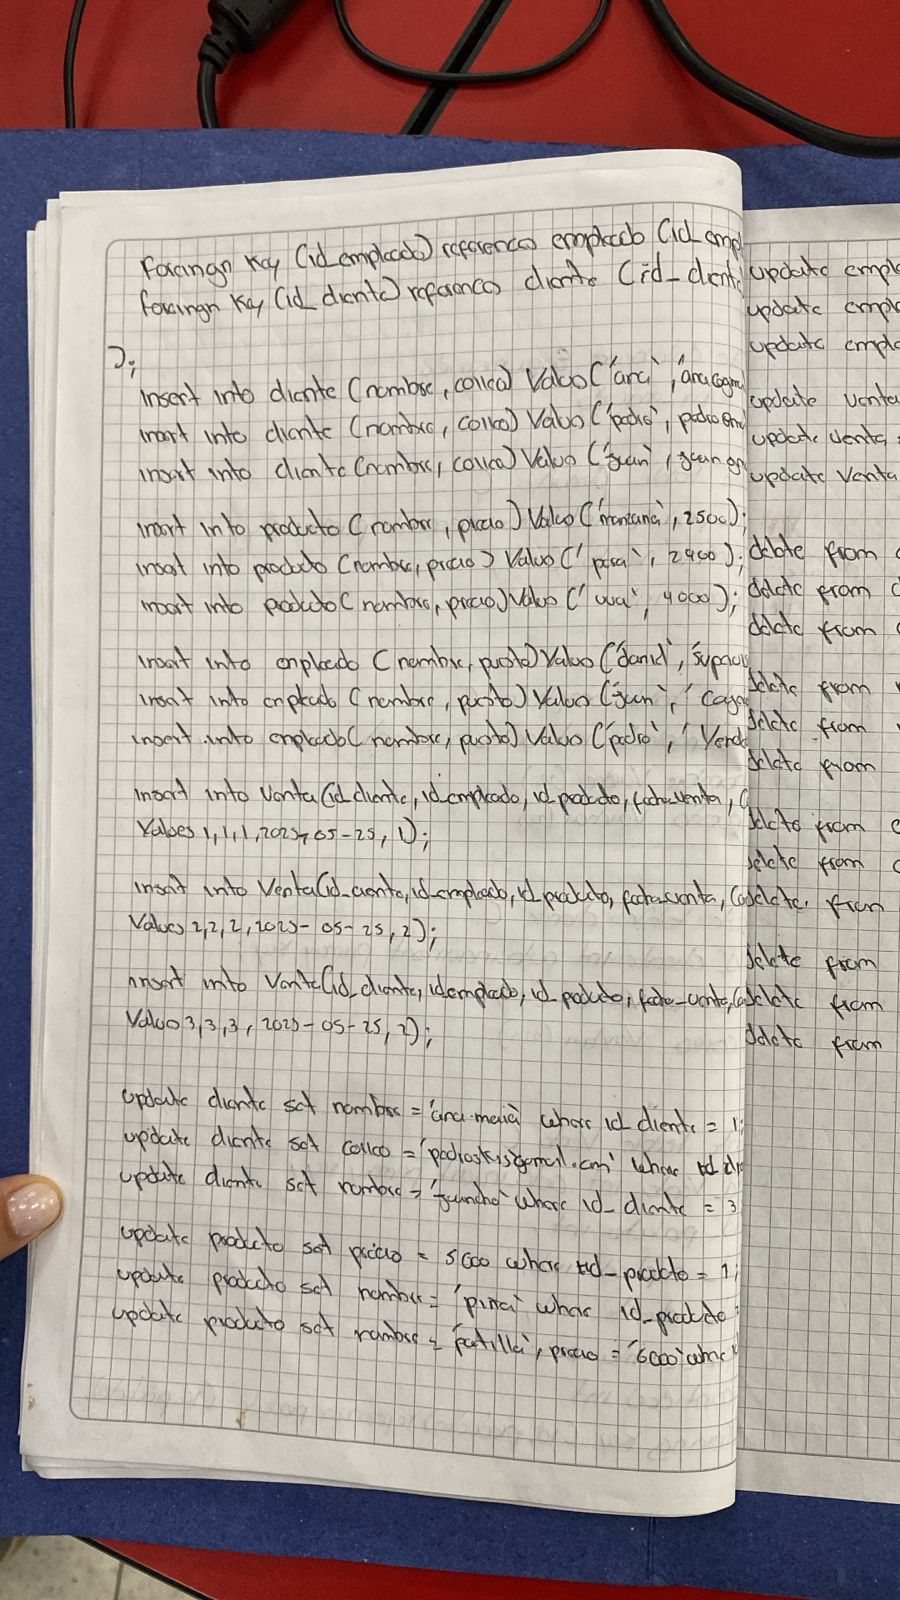 foraingn key (id_empleado) references empleado (id_emp
foraingn key (id_cliente) references cliente (id_client
);
insert into cliente (nombre, correo) Values ('ana', 'anacogm
insert into cliente (nombre, correo) Values ('pedro', pedro
insert into cliente (nombre, correo) Values ('juan', juan
insert into producto (nombre, precio) Values ('manzana', 2500);
insert into producto (nombre, precio) Values ('pera', 2400);
insert into producto (nombre, precio) Values ('uva', 4000);
insert into enpleado (nombre, puesto) Values ('daniel',
insert into enpleado (nombre, puesto) Values ('juan',
insert into enpleado (nombre, puesto) Values ('pedro', 'Vend
insert into Venta (id_cliente, id_empleado, id_producto, fecha_venta,
Values 1,1,1, 2025-05-25, 1);
insert into Venta (id_cliente, id_empleado, id_producto, fecha_venta,
Values 2,2,2, 2025-05-25, 2);
insert into Venta (id_cliente, id_empleado, id_producto, fecha_venta,
Values 3,3,3, 2025-05-25, 2);
update cliente set nombre = 'ana maria' where id_cliente = 1;
update cliente set correo = where id
update cliente set nombre = 'juancho' where id_cliente = 3
update producto set precio = 5000 where id_producto = 1;
update producto set nombre = 'pina' where id_producto
update producto set nombre = 'patilla', precio = '6000' where
update emple
update emple
update emple
update venta
update venta
update Venta
delete from
delete from
delete from
delete from
delete from
delete from
delete from
delete from
delete from
delete from
delete from
delete from